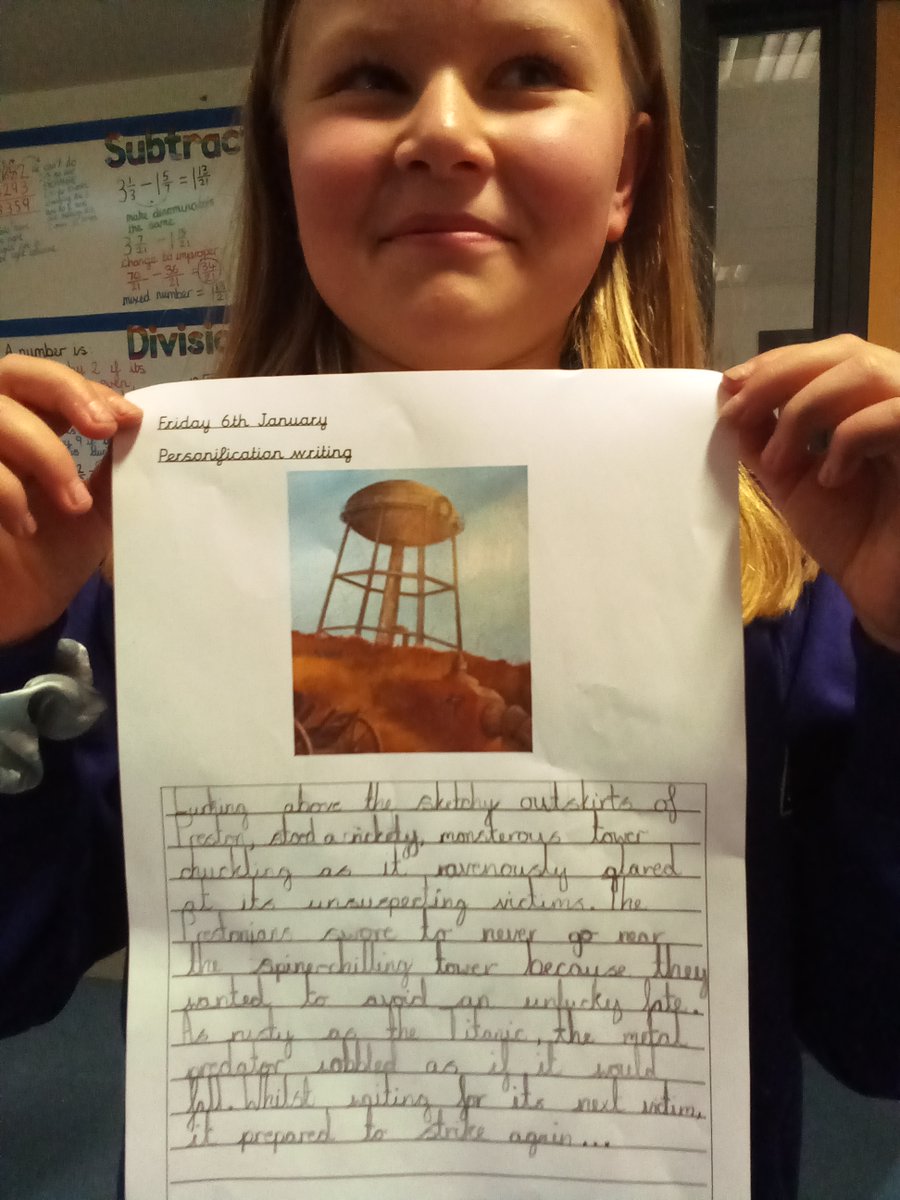 Subtrac
3 1/3 - 1 5/7 = 1 13/21
make denominators
the same
change to improper
70/21 - 36/21 = 34/21
mixed number = 1 13/21
293
359
Divisio
A number is
by 2 if its
even,
Friday 6th January
Personification writing
Lurking above the sketchy outskirts of
Preston, stood a rickety, monsterous tower
chuckling as it ravenously glared
at its unsuspecting victims. The
Prestonians swore to never go near
the spine-chilling tower because they
wanted to avoid an unlucky fate.
As rusty as the Titanic, the metal
predator wobbled as if it would
fall. Whilst waiting for its next victim,
it prepared to strike again...